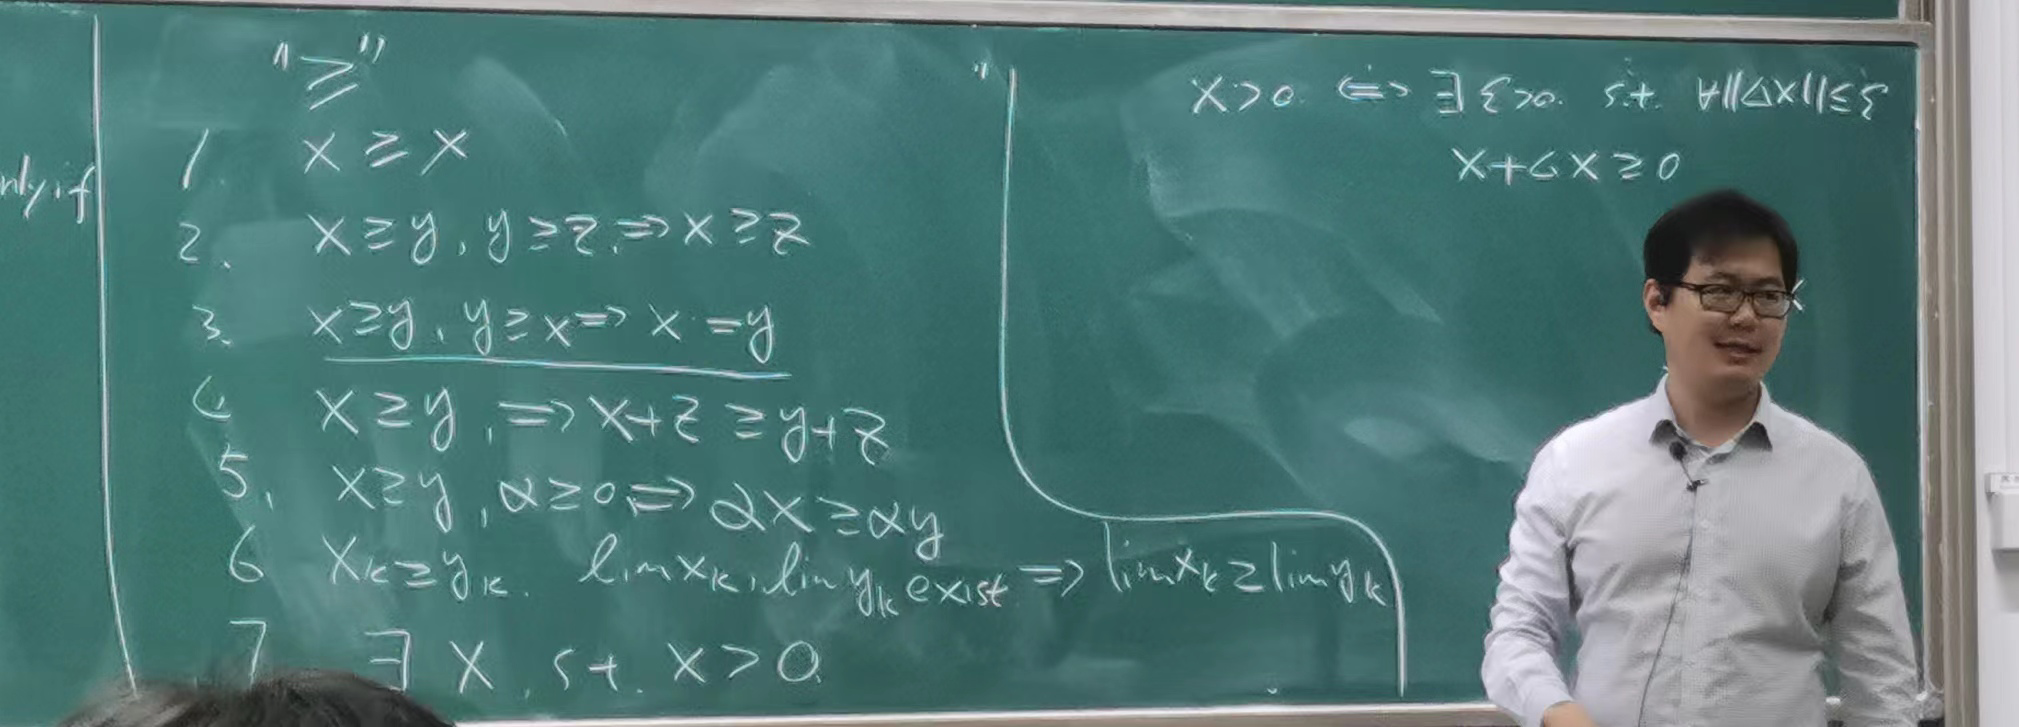 nly if
"≥"
1 x ≥ x
2. x ≥ y, y ≥ z, ⇒ x ≥ z
3. x ≥ y, y ≥ x ⇒ x = y
4 x ≥ y, ⇒ x+z ≥ y+z
5. x ≥ y, α ≥ 0, ⇒ αx ≥ αy
6 x_k ≥ y_k. lim x_k, lim y_k exist ⇒ lim x_k ≥ lim y_k
7 ∃ x, s.t. x > 0.
"
x > 0. ⇔ ∃ ξ > 0. s.t. ∀ ||Δx|| ≤ ξ
x + Δx ≥ 0